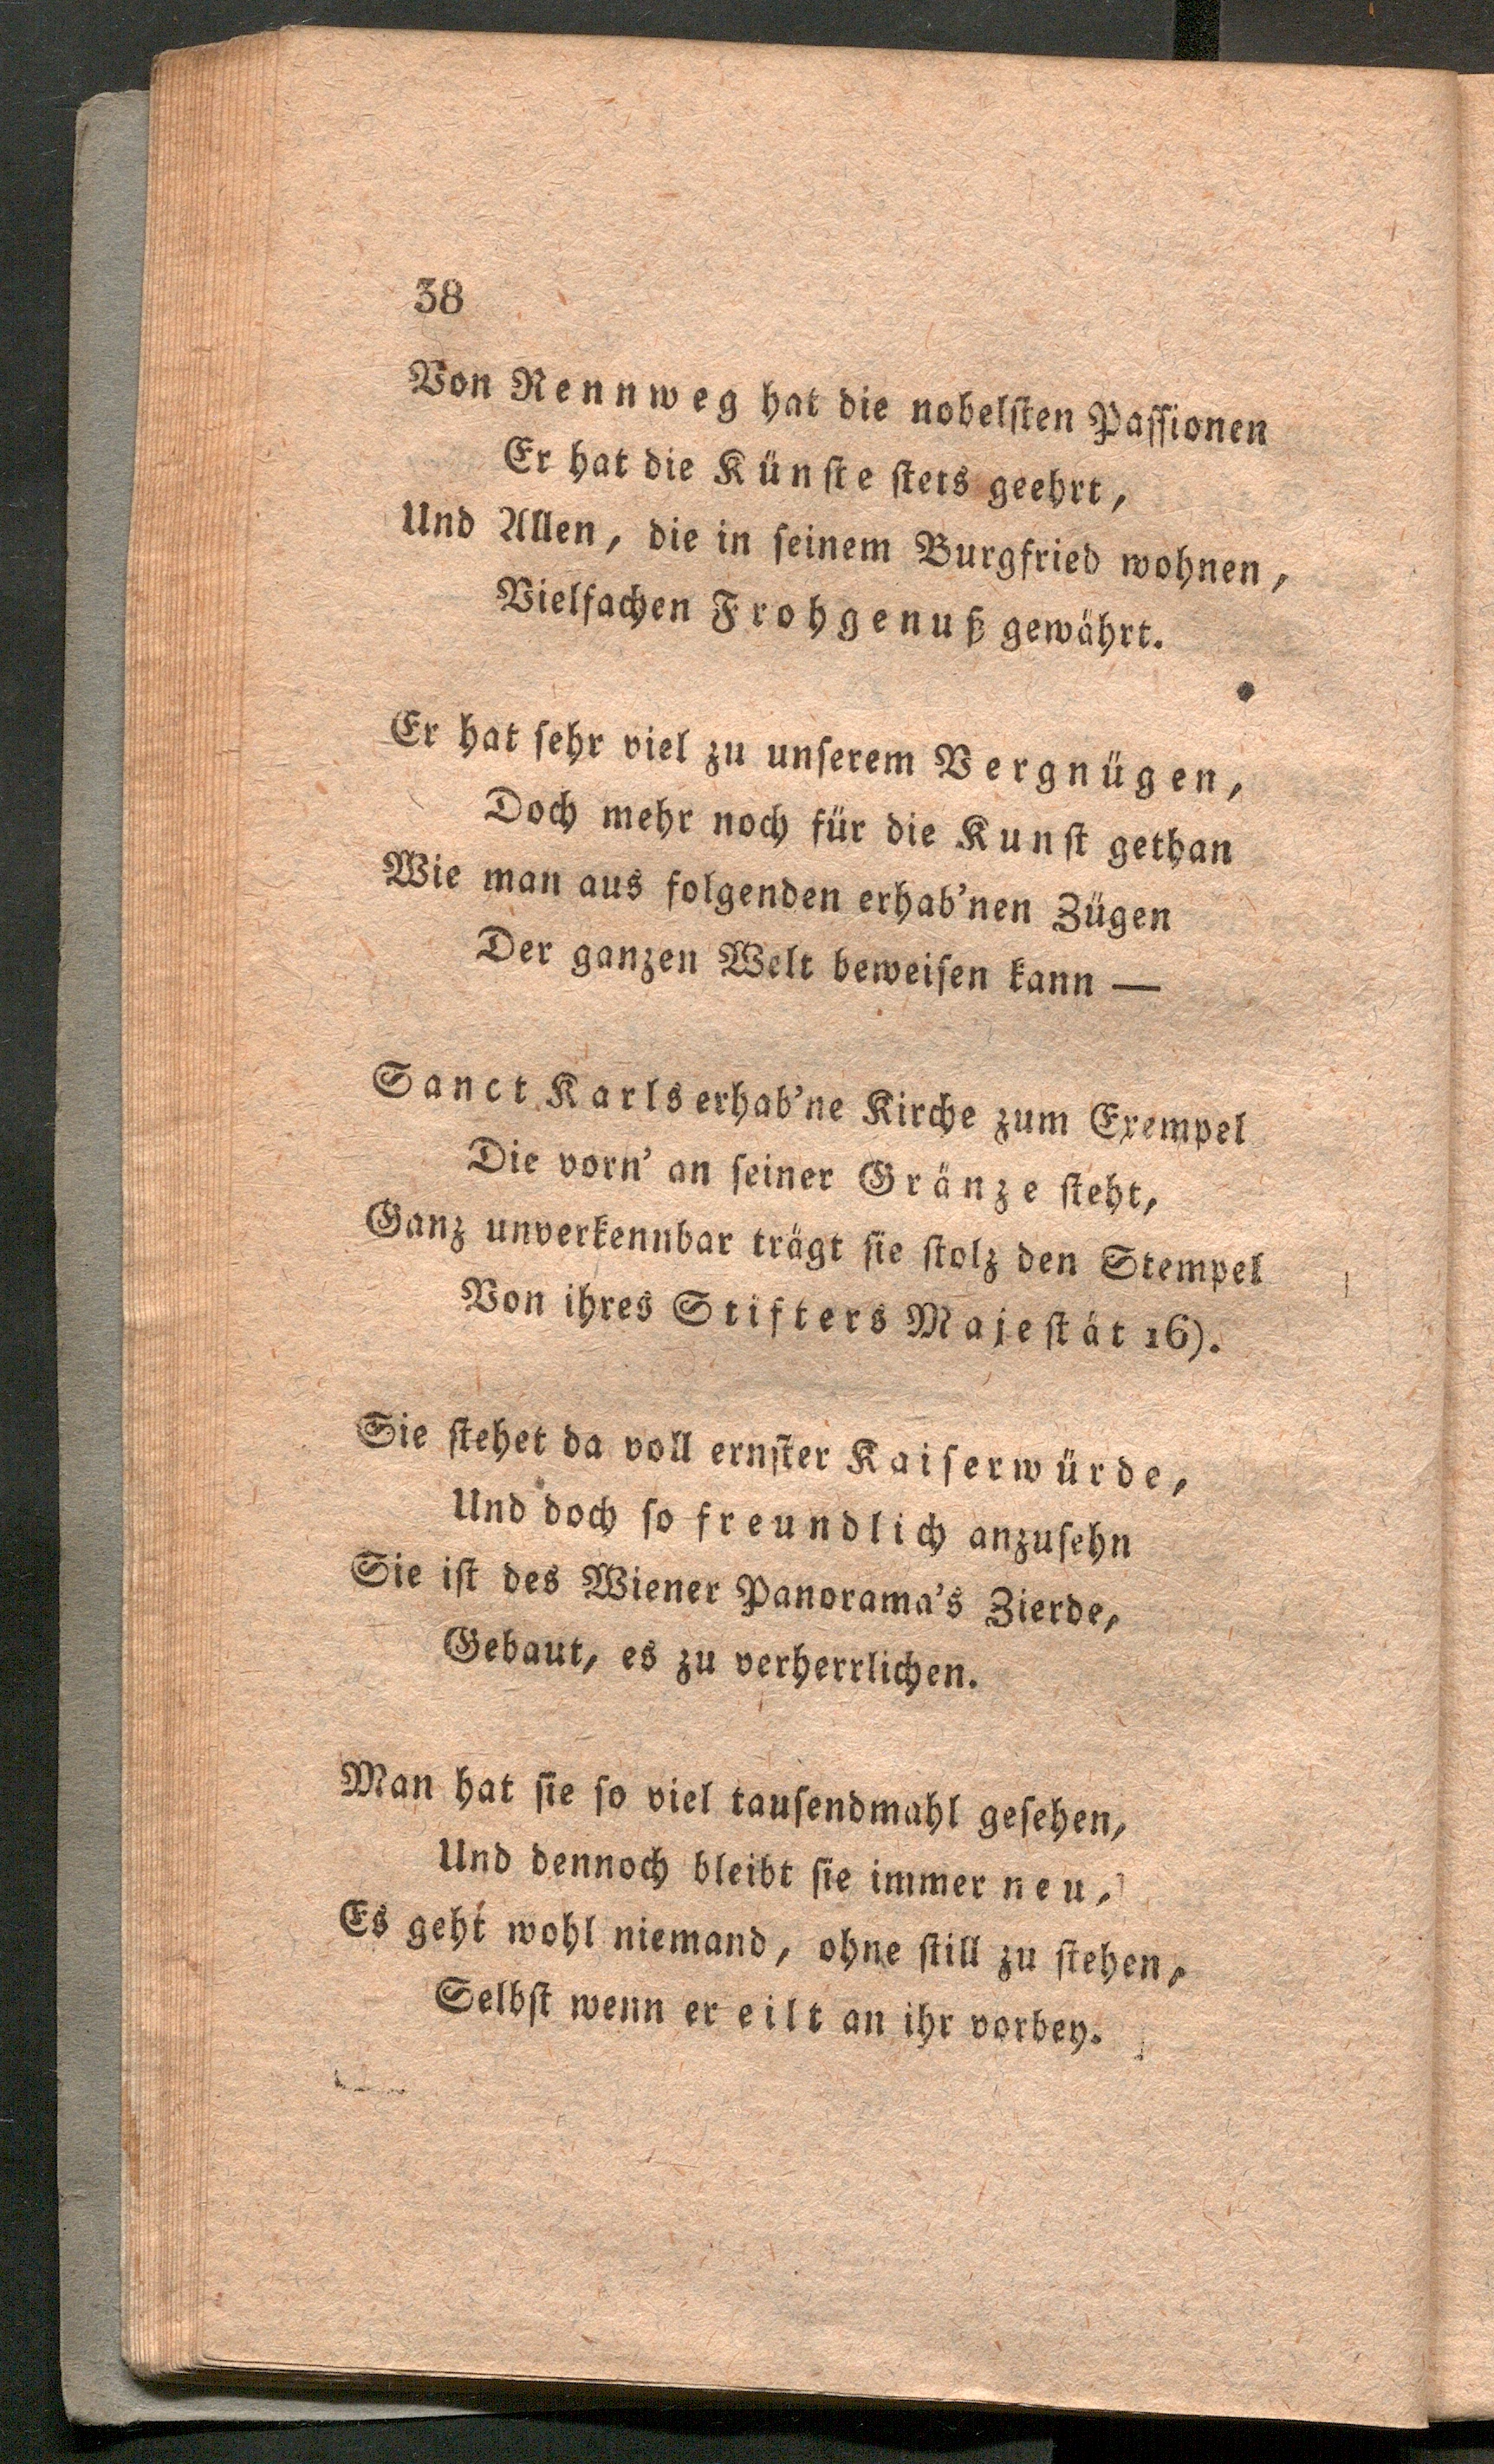 38
Von Rennweg hat die nobelsten Passionen
Er hat die Künste stets geehrt,
Und Allen, die in seinem Burgfried wohnen,
Vielfachen Frohgenuß gewährt.
Er hat sehr viel zu unserem Vergnügen,
Doch mehr noch für die Kunst gethan
Wie man aus folgenden erhab'nen Zügen
Der ganzen Welt beweisen kann —
Sanct Karls erhab'ne Kirche zum Exempel
Die vorn' an seiner Gränze steht,
Ganz unverkennbar trägt sie stolz den Stempel
Von ihres Stifters Majestät 16).
Sie stehet da voll ernster Kaiserwürde,
Und doch so freundlich anzusehn
Sie ist des Wiener Panorama's Zierde,
Gebaut, es zu verherrlichen.
Man hat sie so viel tausendmahl gesehen,
Und dennoch bleibt sie immer neu,
Es geht wohl niemand, ohne still zu stehen,
Selbst wenn er eilt an ihr vorbey.